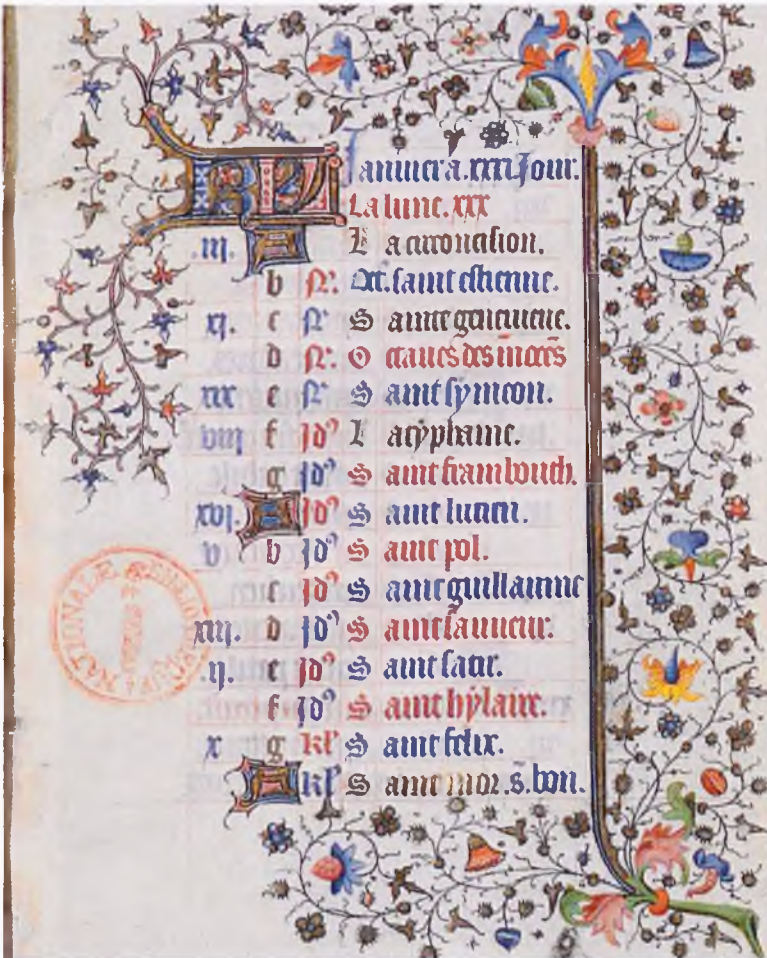 KL Januier a .xxxi. Jour.
La lune .xxx
.iij. A La circoncision.
b N'. Oct. saint estienne.
xj. c N' Sainte geneuieue.
d N'. Octaues des innoces
xix e N' Saint symeon.
viij f Jd' La typhaine.
g Jd' Saint frambourch.
xvj. A Jd' Saint lucien.
v b Jd' Saint pol.
c Jd' Saint guillaume
xiij. d Jd' Saint sauueur.
ij. e Jd' Saint satir.
f Jd' Saint hylaire.
x g kl' Saint felix.
A kl' Saint mor. s. bon.
NATIONALE